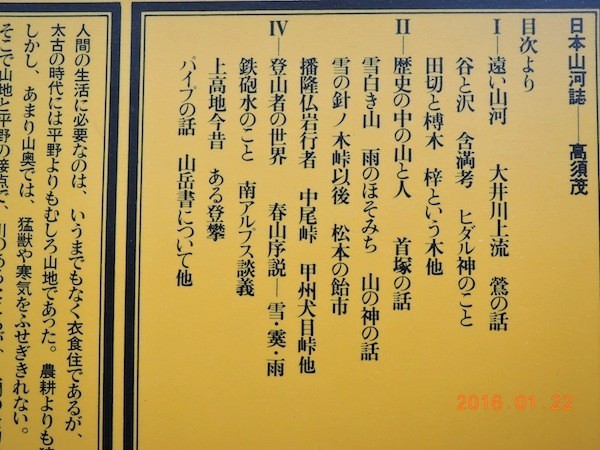 日本山河誌――高須茂
目次より
Ⅰ―遠い山河 大井川上流 鶯の話
谷と沢 含満考 ヒダル神のこと
田切と榑木 梓という木他
Ⅱ―歴史の中の山と人 首塚の話
雪白き山 雨のほそみち 山の神の話
雪の針ノ木峠以後 松本の飴市
播隆仏岩行者 中尾峠 甲州犬目峠他
Ⅳ―登山者の世界 春山序説―雪・霙・雨
鉄砲水のこと 南アルプス談義
上高地今昔 ある登攀
パイプの話 山岳書について他
人間の生活に必要なのは、いうまでもなく衣食住であるが、
太古の時代には平野よりもむしろ山地であった。農耕よりも
しかし、あまり山奥では、猛獣や寒気をふせぎきれない。
そこで山地と平野の接点で、川のある
2016.01.22